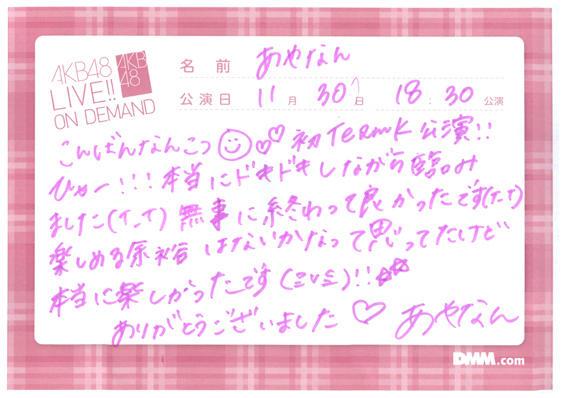 AKB48
LIVE!!
ON DEMAND
AKB
48
名 前 あやなん
公演日 11月 30日 18:30 公演
こんばんなんこつ 初 TeamK 公演!!
ひゃー!!!本当にドキドキしながら臨み
ました(T_T) 無事に終わって良かったです(T-T)
楽しめる余裕はないかなって思ってたけど
本当に楽しかったです(≧∨≦)!!
ありがとうございました♡ あやなん
DMM.com